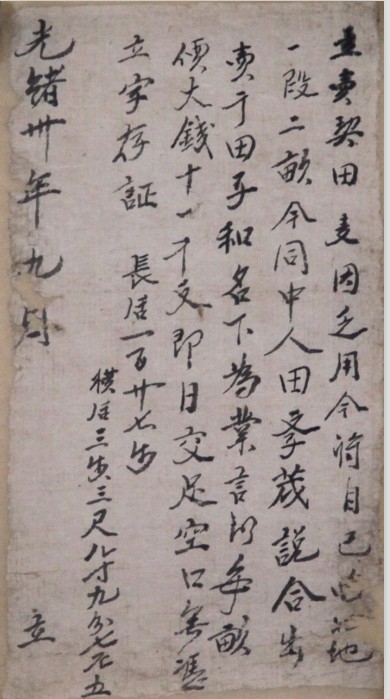 立賣契田 因乏用今將自己 地
一段二畝今同中人田 茂說合出
賣于田子和名下為業言明每畝
價大錢十一千文即日交足空口無憑
立字存証
長活一百廿七步
橫活三步三尺八寸九分七厘五
光緒卅年九月 立